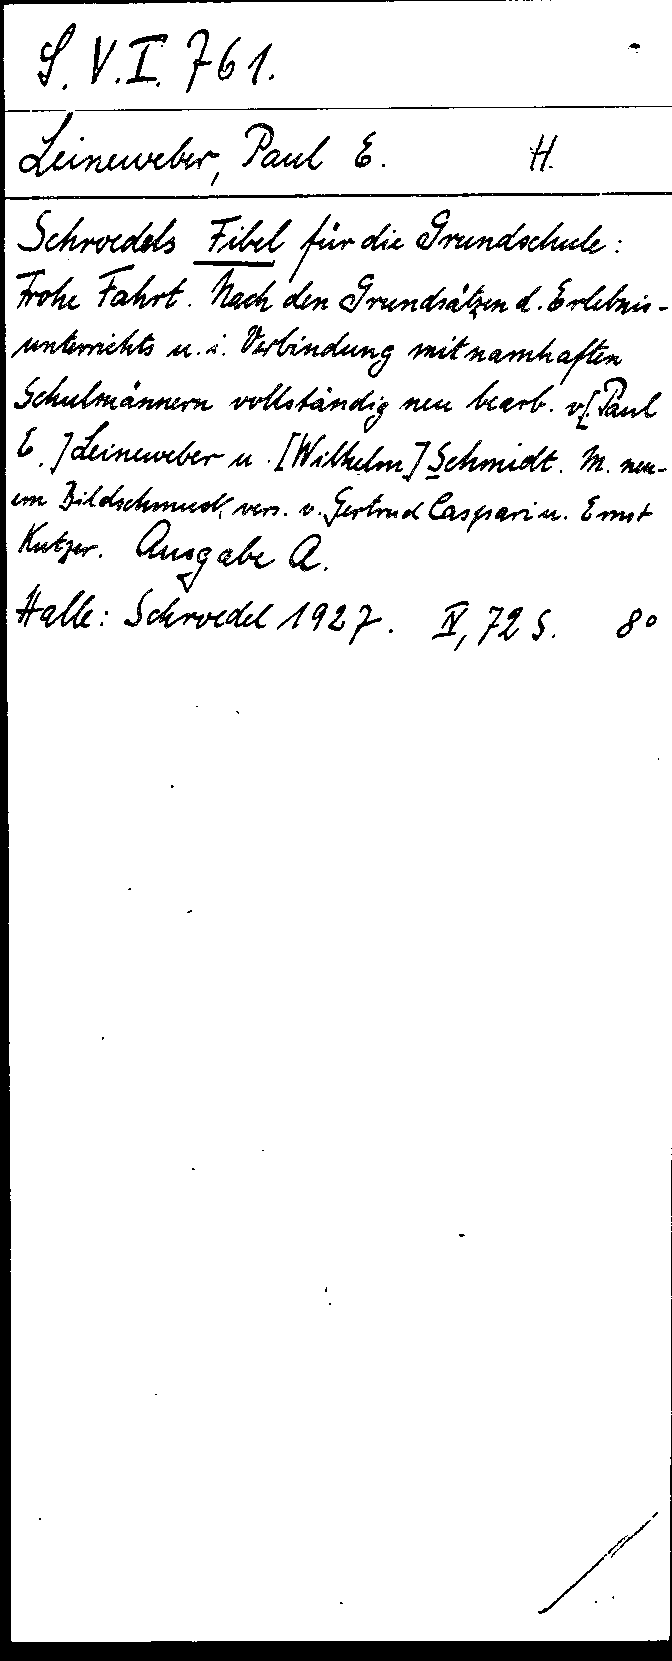 S. V. I. 761.
Leineweber, Paul E. H.
Schroedels Fibel für die Grundschule:
Frohe Fahrt. Nach den Grundsätzen d. Erlebnis-
unterrichts u. i. Verbindung mit namhaften
Schulmännern vollständig neu bearb. v. [Paul
E.] Leineweber u. [Wilhelm] Schmidt. M. neu-
em Bildschmuck, vers. v. Gertrud Caspari u. Ernst
Kutzer. Ausgabe A.
Halle: Schroedel 1927. IV, 72 S. 8°